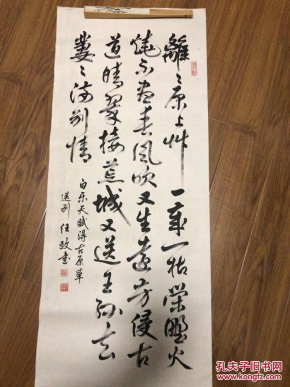 離〻原上艸一歲一枯榮野火
燒不盡春風吹又生遠芳侵古
道晴翠接荒城又送王孫去
萋〻滿別情
白乐天賦得古原草
送别 任政书
孔夫子旧书网